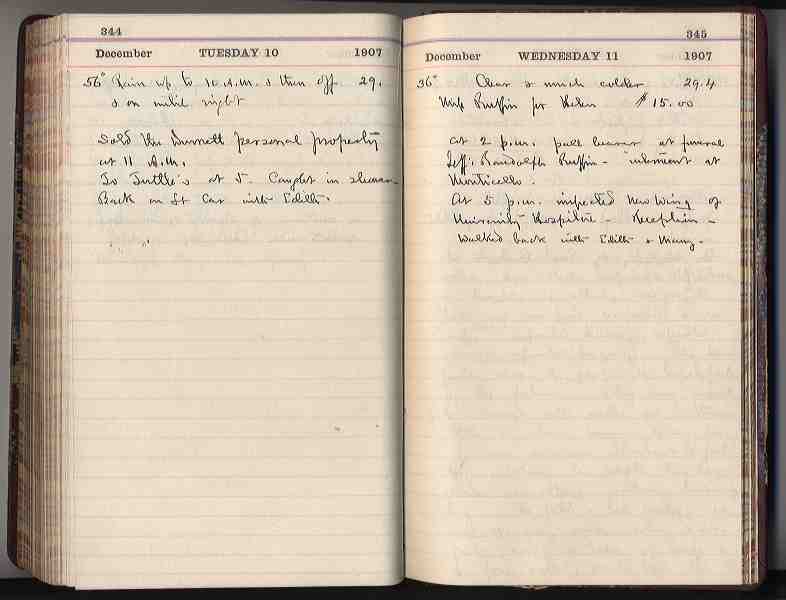 344
December TUESDAY 10 1907
56° Rain up to 10 A.M. & then off 29.
& on until night
Sold the Burnett personal property
at 11 A.M.
To Tuttle's at 5. Caught in shower
Back on St Car with Edith.
345
December WEDNESDAY 11 1907
36° Clear & much colder 29.4
Ruffin for Helen $15.00
at 2 p.m. pall bearer at funeral
Jeff: Randolph Ruffin - interment at
Monticello.
At 5 p.m. inspected new wing of
University Hospital - Reception -
Walked back with Edith & Mary -